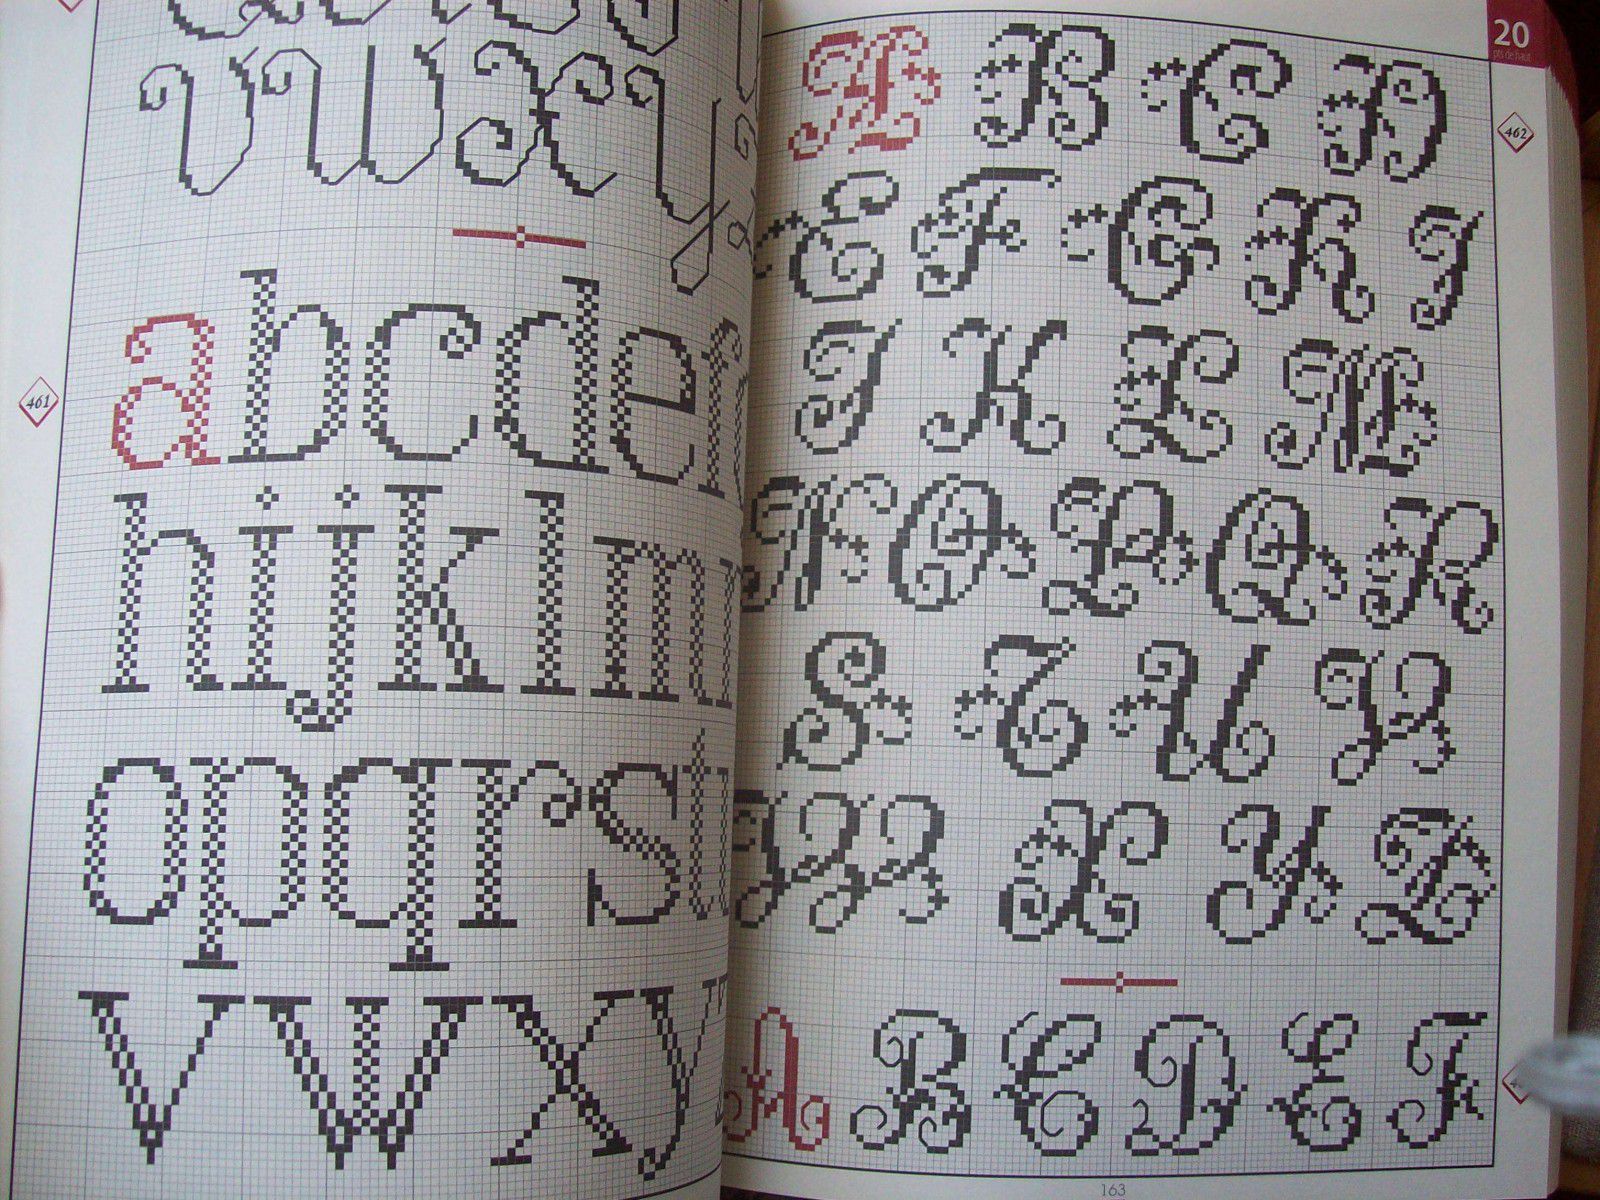 v w x y
461
a b c d e f
h i j k l m
o p q r s t
v w x y
20
pts de haut
462
A B C D
E F G H I
J K L M
N O P Q R
S T U V
W X Y Z
A B C D E F
163